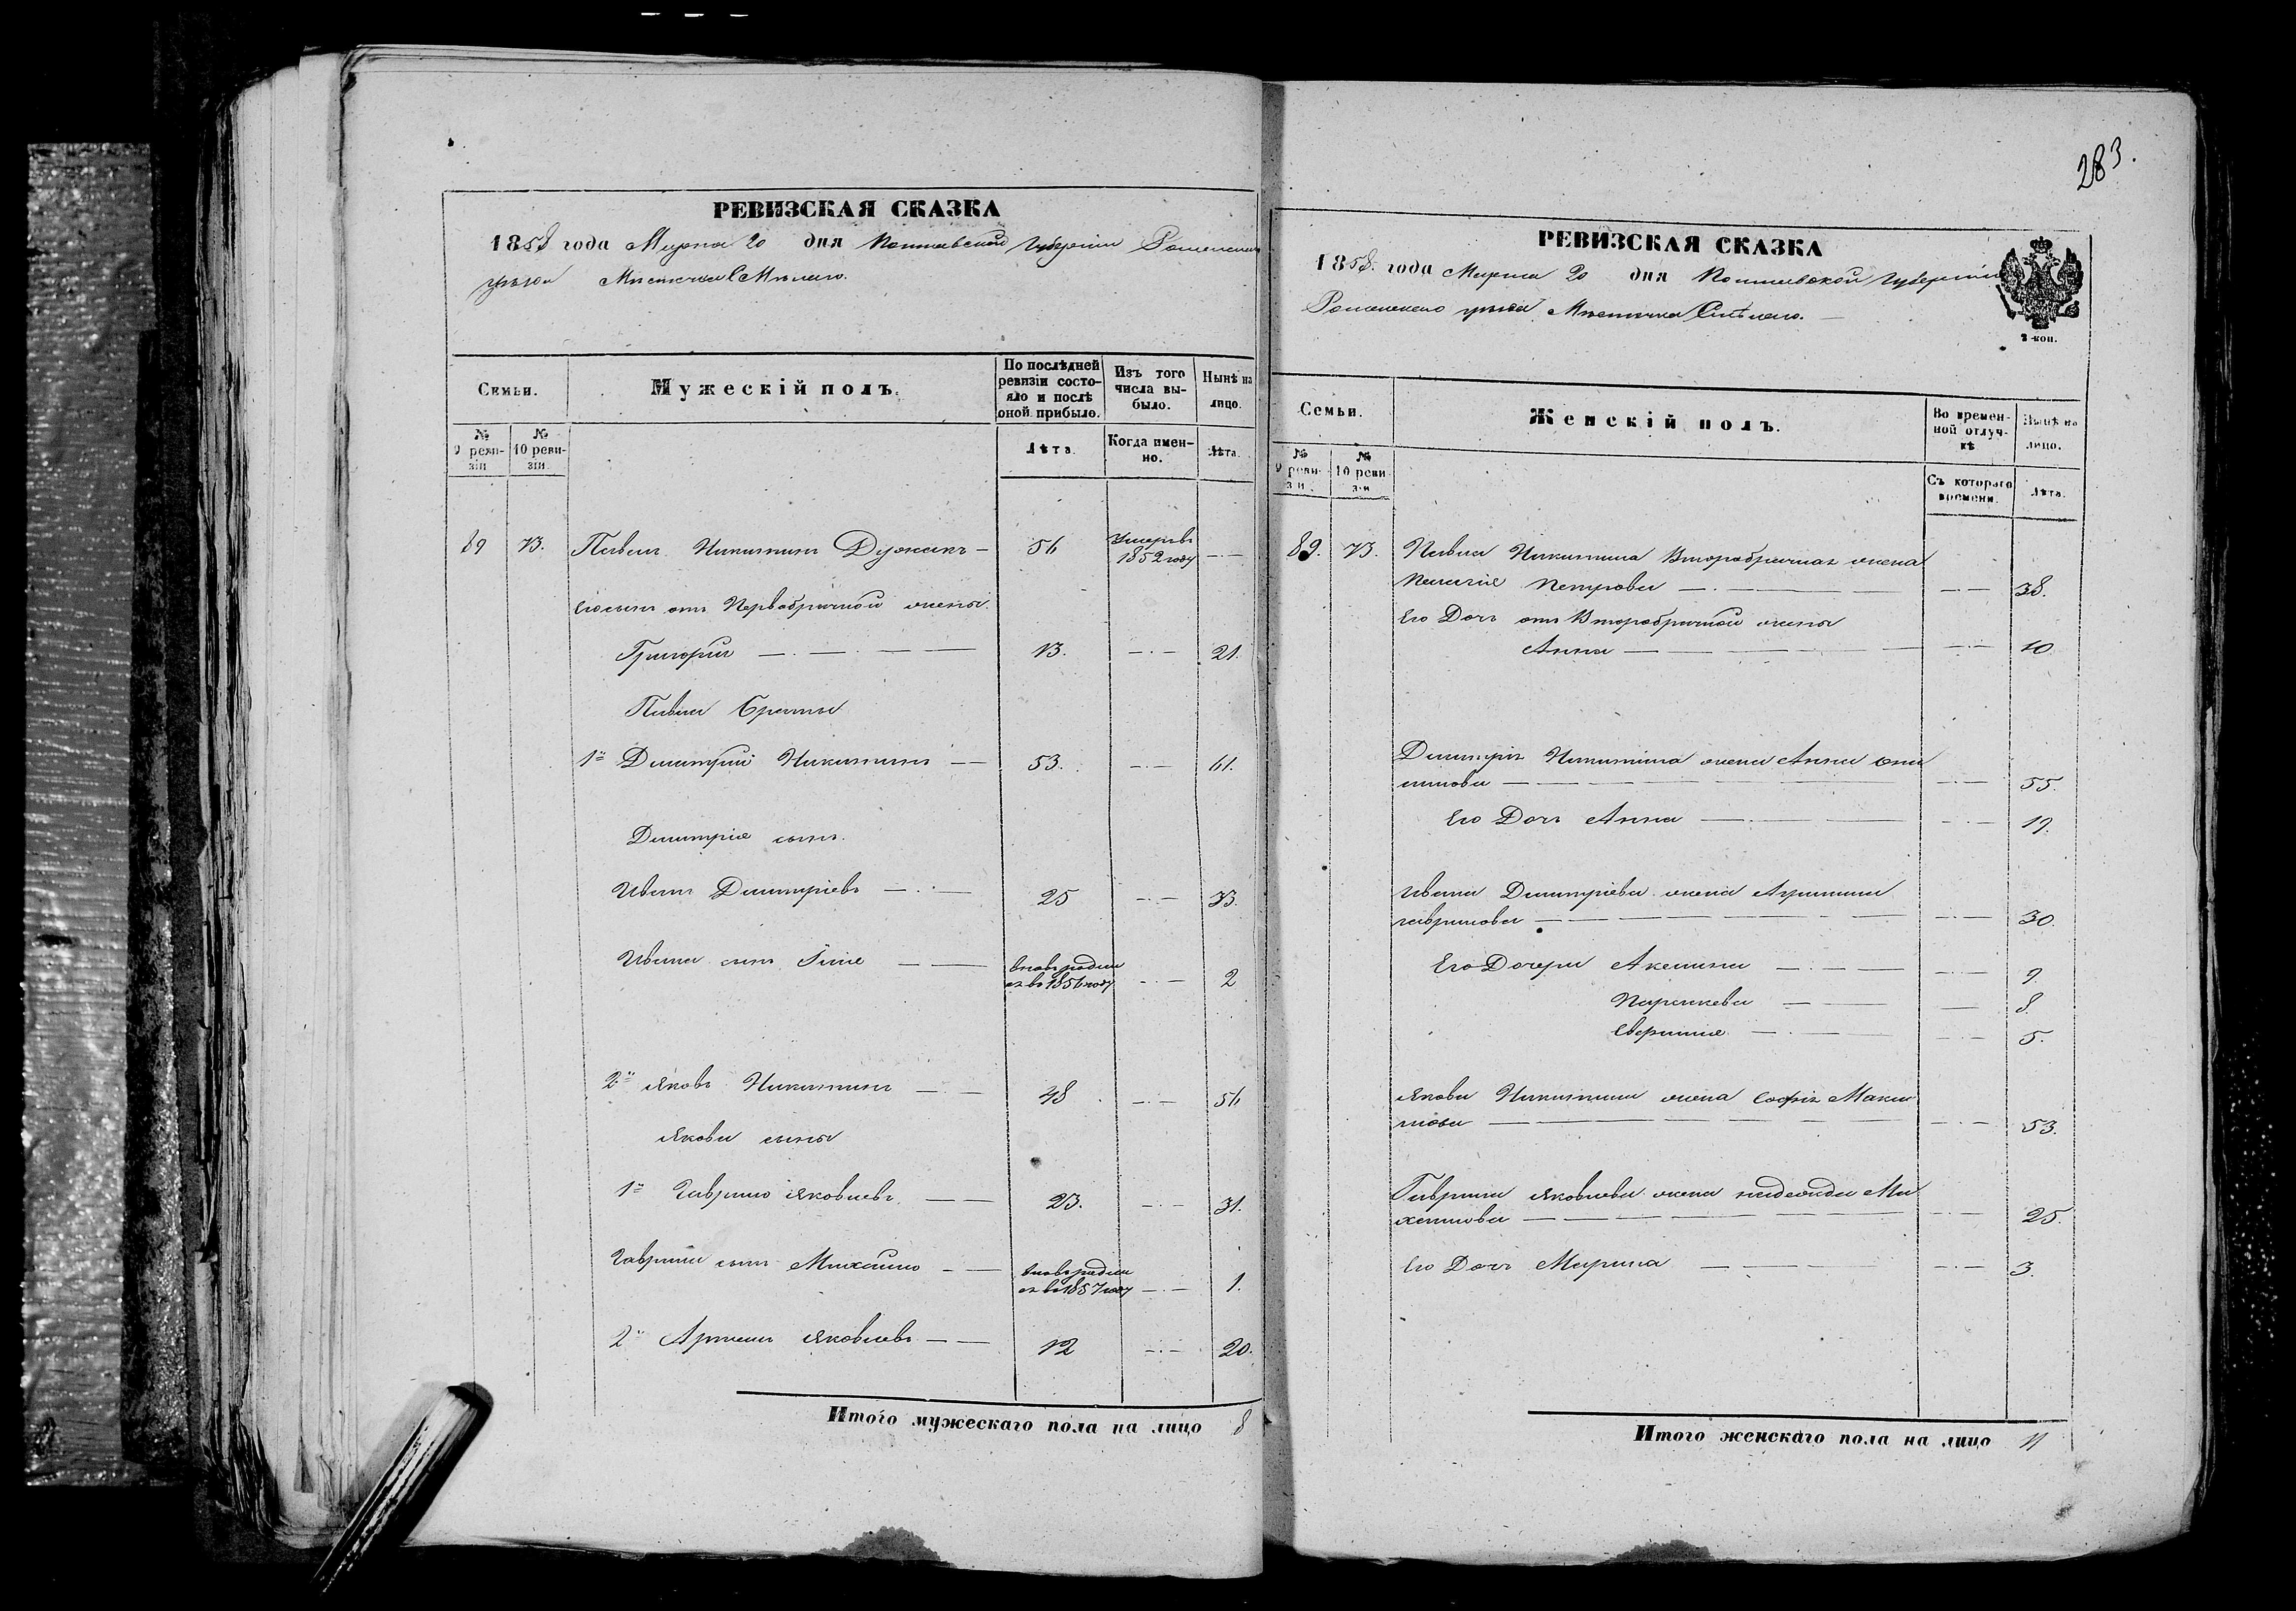 283.
РЕВИЗСКАЯ СКАЗКА
1858 года Марта 20 дня Полтавской Губерніи Роменскаго
уѣзда Мѣстечка Смѣлаго.
Семьи.
Мужескій полъ.
По послѣдней ревизіи состояло и послѣ оной прибыло.
Изъ того числа выбыло.
Нынѣ на лицо.
№ 9 ревизіи
№ 10 ревизіи
Лѣта.
Когда именно.
Лѣта.
89 73. Павелъ Никитинъ Дужакъ — 56 Умеръ въ 1852 году — · —
Его сынъ отъ Первобрачной жены
Григорій — · — 13. — · — 21.
Павла Браты
1й Димитрій Никитинъ — 53. — · — 61.
Димитрія сынъ.
Иванъ Димитріевъ — · — 25 — · — 33.
Ивана сынъ — — вновь родился въ 1856 году — · — 2
2й Яковъ Никитинъ — · — 48 — · — 56
Якова сыны
1й Гаврило Яковлевъ — — 23. — · — 31.
Гаврила сынъ Михайло — — вновь родился въ 1857 году — · — 1.
2й Артемъ Яковлевъ — — 12 — · — 20.
Итого мужескаго пола на лицо 8
РЕВИЗСКАЯ СКАЗКА
1858 года Марта 20 дня Полтавской Губерніи
Роменскаго уѣзда Мѣстечка Смѣлаго. —
2 коп.
Семьи.
Женскій полъ.
Во временной отлучкѣ
Нынѣ на лицо.
№ 9 ревизіи
№ 10 ревизіи
Съ котораго времени.
Лѣта.
89. 73. Павла Никитина Второбрачная жена
Пелагія Петрова — · — — · — 38.
Его Дочь отъ Второбрачной жены
Анна — — · — 10
Димитрія Никитина жена Анна
— · — 55.
Его Дочь Анна — · — — · — 19.
Ивана Димитріева жена
Гаврилова — — · — 30.
Его Дочери Аксинья — · — — · — 9.
Параскева — — — 8.
Евфимія — · — — · — 5.
Якова Никитина жена Софія Макси
мова — — · — 53.
Гаврила Яковлева жена Надежда Ми
хайлова — — · — 25.
Его Дочь Марина — — · — 3.
Итого женскаго пола на лицо 11